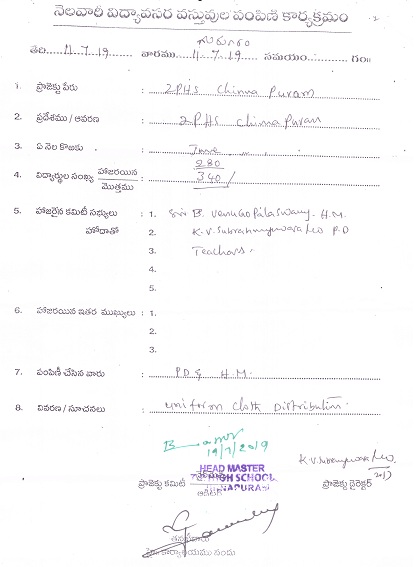 నెలవారి విద్యావసర వస్తువుల పంపిణి కార్యక్రమం
తేది....11.7.19....... వారము...గురువారం 11.7.19...... సమయం........గం॥
1. ప్రాజెక్టు పేరు : ZPHS Chinna Puram
2. ప్రదేశము / ఆవరణ : ZPHS Chinna Puram
3. ఏ నెల కొఱకు : June
4. విద్యార్థుల సంఖ్య హాజరయిన : 280
మొత్తము 340/
5. హాజరైన కమిటీ సభ్యులు : 1. Sri B. Venugopalaswamy. H.M.
హోదాతో 2. K.V. Subrahmanyeswara Rao P.D
3. Teachers.
4.
5.
6. హాజరయిన ఇతర ముఖ్యులు : 1.
2.
3.
7. పంపిణీ చేసిన వారు : PD & H.M.
8. వివరణ / సూచనలు : uniform Cloth Distribution.
19/7/2019
HEAD MASTER
Z.P. HIGH SCHOOL
ప్రాజెక్టు కమిటీ ప్రాజెక్టు డైరెక్టర్
ఆడిటర్